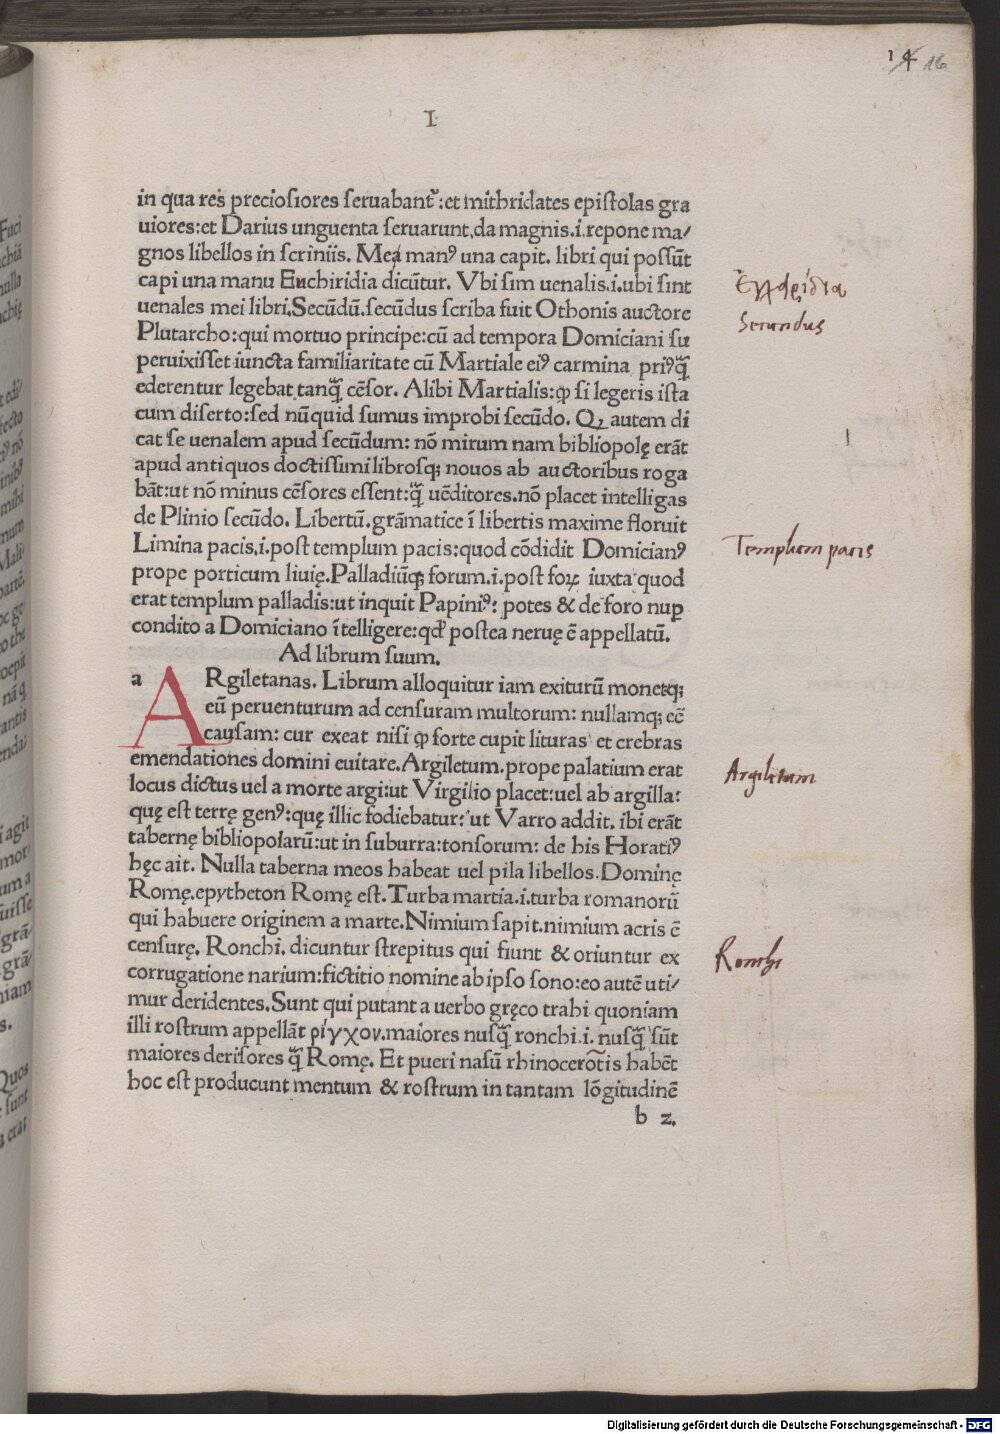 14 16
I
in qua res preciosiores seruabantᷣ: et mithridates epistolas gra
uiores: et Darius unguenta seruarunt, da magnis .i. repone ma/
gnos libellos in scriniis. Mea man⁹ una capit. libri qui possūt
capi una manu Enchiridia dicūtur. Vbi sim uenalis .i. ubi sint
uenales mei libri. Secūdū. secūdus scriba fuit Othonis auctore
Plutarcho: qui mortuo principe: cū ad tempora Domiciani su
peruixisset iuncta familiaritate cū Martiale ei⁹ carmina pri⁹q̄
ederentur legebat tanq̄ cēsor. Alibi Martialis: ꝙ si legeris ista
cum diserto: sed nūquid sumus improbi secūdo. Qꝫ autem di
cat se uenalem apud secūdum: nō mirum nam bibliopolę erāt
apud antiquos doctissimi librosqꝫ nouos ab auctoribus roga
bāt: ut nō minus cēsores essent: q̄ uēditores. nō placet intelligas
de Plinio secūdo. Libertū. grāmatice ī libertis maxime floruit
Limina pacis .i. post templum pacis: quod cōdidit Domician⁹
prope porticum liuię. Palladiūqꝫ forum .i. post foꝝ iuxta quod
erat templum palladis: ut inquit Papini⁹: potes & de foro nuꝑ
condito a Domiciano ītelligere: qđ postea neruę ē appellatū.
Ad librum suum.
a ARgiletanas. Librum alloquitur iam exiturū monetqꝫ
eū peruenturum ad censuram multorum: nullamqꝫ eē
causam: cur exeat nisi ꝙ forte cupit lituras et crebras
emendationes domini euitare. Argiletum. prope palatium erat
locus dictus uel a morte argi: ut Virgilio placet: uel ab argilla:
quę est terrę gen⁹: quę illic fodiebatur: ut Varro addit. ibi erāt
tabernę bibliopolarū: ut in suburra: tonsorum: de his Horati⁹
hęc ait. Nulla taberna meos habeat uel pila libellos. Dominę
Romę. epytheton Romę est. Turba martia .i. turba romanorū
qui habuere originem a marte. Nimium sapit. nimium acris ē
censurę. Ronchi. dicuntur strepitus qui fiunt & oriuntur ex
corrugatione narium: fictitio nomine ab ipso sono: eo autē uti/
mur deridentes. Sunt qui putant a uerbo gręco trahi quoniam
illi rostrum appellāt ρίγχον. maiores nusq̄ ronchi .i. nusq̄ sūt
maiores derisores q̄ Romę. Et pueri nasū rhinocerōtis habēt
hoc est producunt mentum & rostrum in tantam lōgitudinē
b 2.
Secundus
Templum pacis
Argiletum
Ronchi
Digitalisierung gefördert durch die Deutsche Forschungsgemeinschaft - DFG